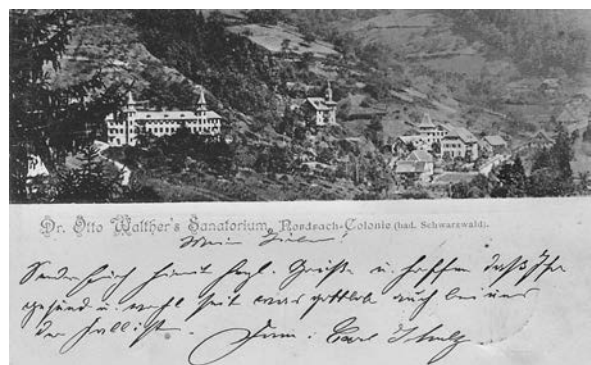 Dr. Otto Walther's Sanatorium, Nordrach-Colonie (bad. Schwarzwald).
Meine Lieben!
Sende Euch hiermit hrzl. Grüße u. hoffen daß Ihr
gesund u. wohl seit was gottlob auch bei uns
der Fall ist. Fam. Carl Schulz